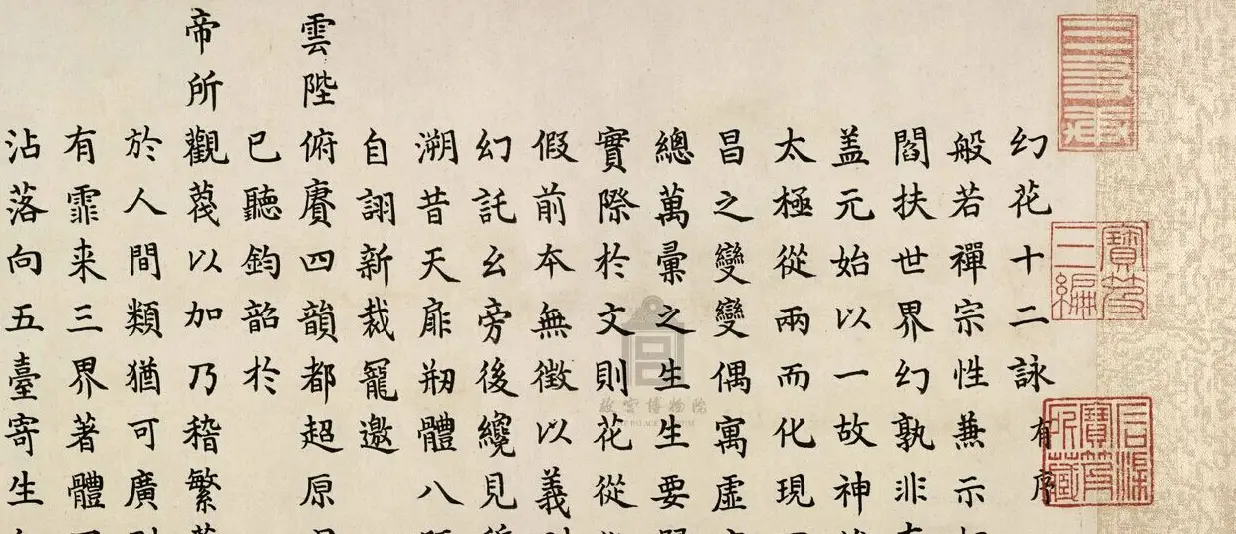 幻花十二詠 有序
般若禪宗性兼示
閻扶世界幻孰非
盖元始以一故神
太極從兩而化現
昌之變變偶寓虛
總萬彙之生生要
實際於文則花從
假前本無徵以義
幻託幺旁後纔見
溯昔天扉剏體八
自詡新裁寵邀
雲陛俯賡四韻都超原
已聽鈞韶於
帝所觀蔑以加乃稽繁
於人間類猶可廣
有霏来三界著體
沾落向五臺寄生
寶笈三編
石渠寶笈所藏
故宫博物院